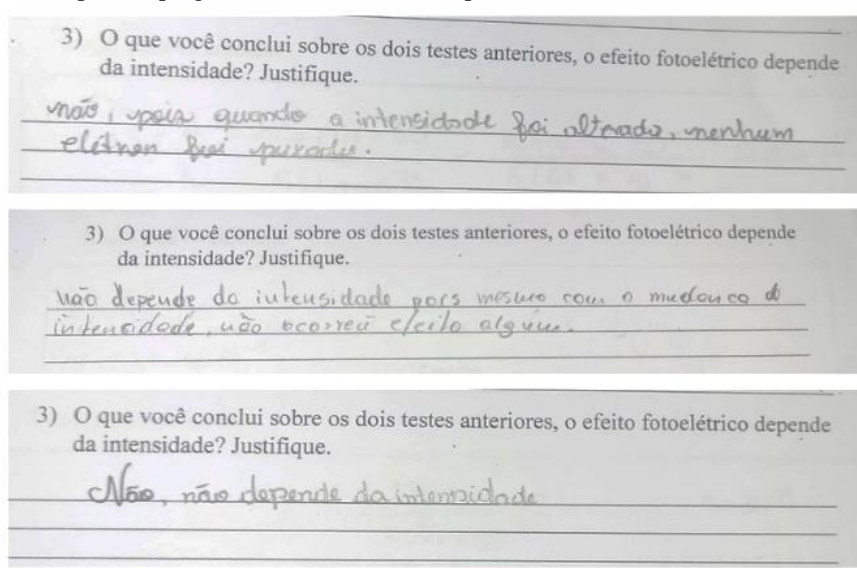 3) O que você conclui sobre os dois testes anteriores, o efeito fotoelétrico depende
da intensidade? Justifique.
não, pois quando a intensidade foi alterada, nenhum
elétron foi puxado.
3) O que você conclui sobre os dois testes anteriores, o efeito fotoelétrico depende
da intensidade? Justifique.
não depende da intensidade pois mesmo com a mudança de
intensidade, não ocorreu efeito algum.
3) O que você conclui sobre os dois testes anteriores, o efeito fotoelétrico depende
da intensidade? Justifique.
Não, não depende da intensidade